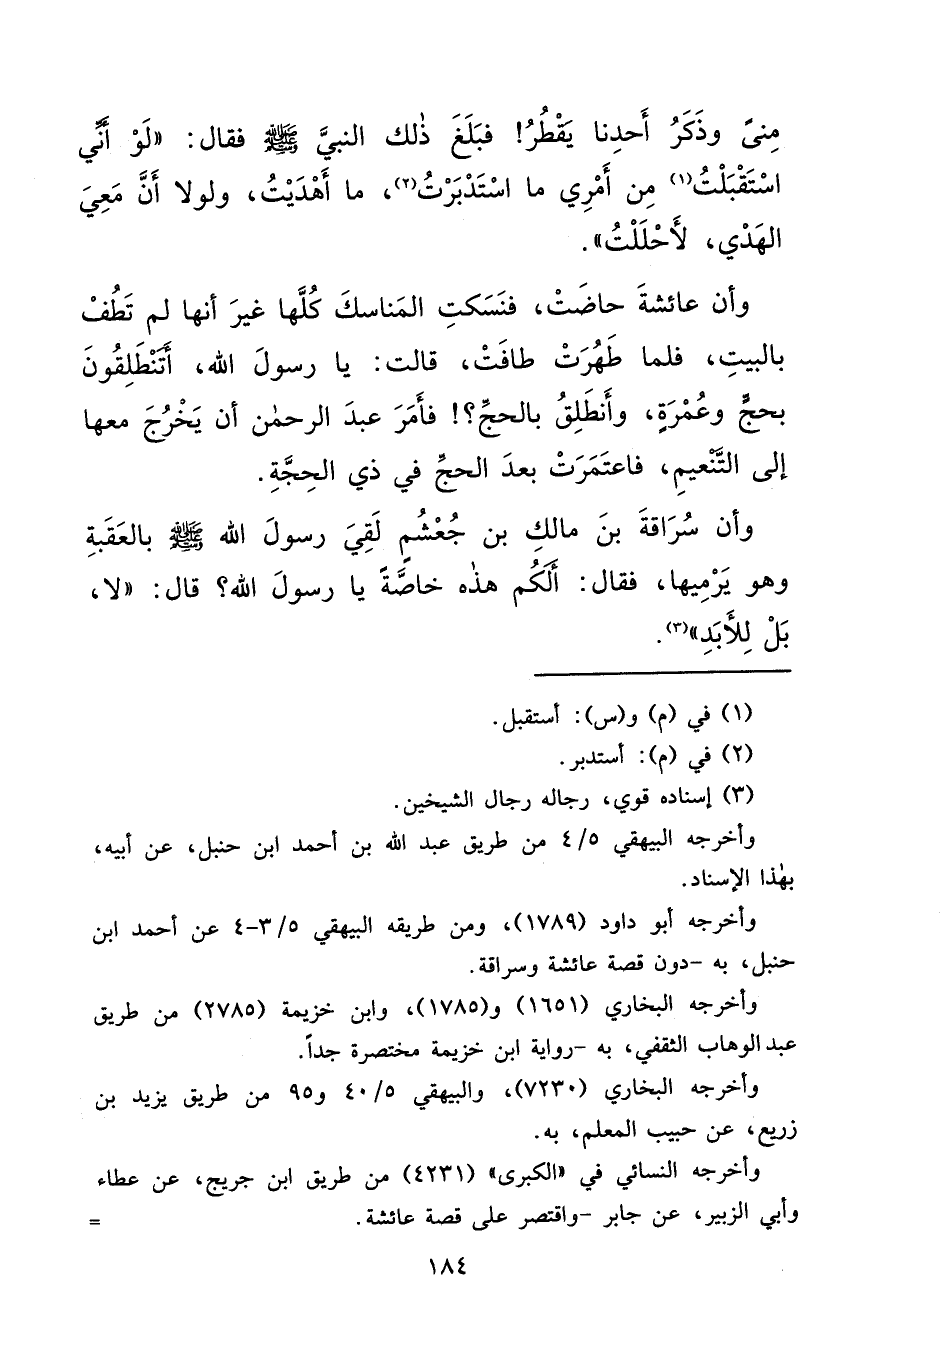 مِنىً وذَكَرُ أَحدِنا يَقْطُرُ! فبَلَغَ ذٰلك النبيَّ ﷺ فقال: «لَوْ أَنِّي
اسْتَقْبَلْتُ(١) مِن أَمْرِي ما اسْتَدْبَرْتُ(٢)، ما أَهْدَيْتُ، ولولا أَنَّ مَعِيَ
الهَدْي، لأَحْلَلْتُ».
وأن عائشةَ حاضَتْ، فنَسَكتِ المَناسكَ كُلَّها غيرَ أنها لم تَطُفْ
بالبيتِ، فلما طَهُرَتْ طافَتْ، قالت: يا رسولَ الله، أَتَنْطَلِقُونَ
بحجٍّ وعُمْرَةٍ، وأَنطَلِقُ بالحجِّ؟! فأَمَرَ عبدَ الرحمٰن أن يَخْرُجَ معها
إلى التَّنْعيمِ، فاعتَمَرَتْ بعدَ الحجِّ في ذي الحِجَّةِ.
وأن سُرَاقةَ بنَ مالكِ بن جُعْشُمٍ لَقِيَ رسولَ الله ﷺ بالعَقَبةِ
وهو يَرْمِيها، فقال: أَلَكُم هذٰه خاصَّةً يا رسولَ الله؟ قال: «لا،
بَلْ لِلأَبَدِ»(٣).
(١) في (م) و(س): أستقبل.
(٢) في (م): أستدبر.
(٣) إسناده قوي، رجاله رجال الشيخين.
وأخرجه البيهقي ٤/٥ من طريق عبد الله بن أحمد ابن حنبل، عن أبيه،
بهٰذا الإسناد.
وأخرجه أبو داود (١٧٨٩)، ومن طريقه البيهقي ٣/٥-٤ عن أحمد ابن
حنبل، به -دون قصة عائشة وسراقة.
وأخرجه البخاري (١٦٥١) و(١٧٨٥)، وابن خزيمة (٢٧٨٥) من طريق
عبد الوهاب الثقفي، به -رواية ابن خزيمة مختصرة جداً.
وأخرجه البخاري (٧٢٣٠)، والبيهقي ٤٠/٥ و٩٥ من طريق يزيد بن
زريع، عن حبيب المعلم، به.
وأخرجه النسائي في «الكبرى» (٤٢٣١) من طريق ابن جريج، عن عطاء
وأبي الزبير، عن جابر -واقتصر على قصة عائشة. =
١٨٤